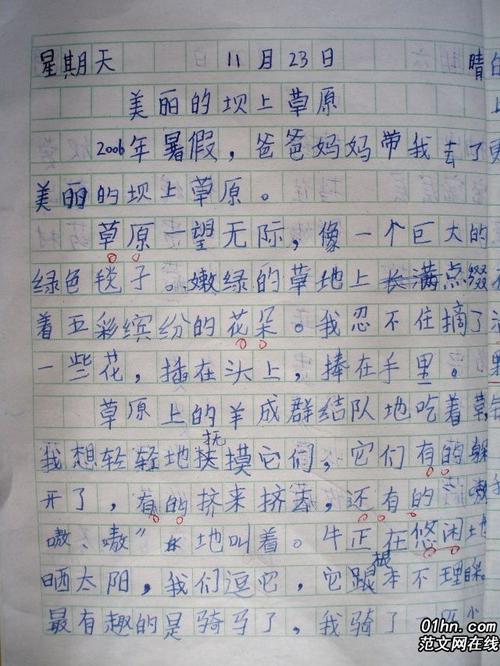 星期天 11月23日 晴
美丽的坝上草原
2006年暑假，爸爸妈妈带我去了
美丽的坝上草原。
草原一望无际，像一个巨大的
绿色毯子。嫩绿的草地上长满点缀
着五彩缤纷的花朵。我忍不住摘了
一些花，插在头上，捧在手里。
草原上的羊成群结队地吃着草
抚
我想轻轻地摸它们，它们有的躲
开了，有的挤来挤去，还有的“嗷
嗷、嗷”地叫着。牛正在悠闲地
根
晒太阳，我们逗它，它跟本不理睬
最有趣的是骑马了，我骑了一匹
01hn.com
范文网在线